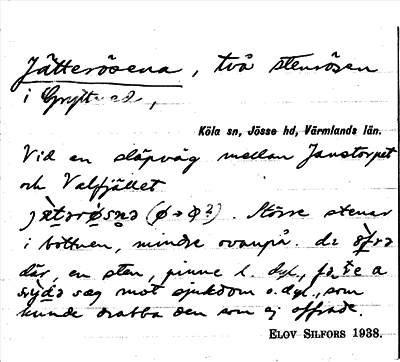 Jätterösena, två stenrösen
i Gryttved,
Köla sn, Jösse hd, Värmlands län.
Vid en släpväg mellan Janstorpet
och Valfjället
(ø→ ?). Större stenar
i bottnen, mindre ovanpå. de
där, en sten, pinne l. dyl., a
sæg mot sjukdom o. dyl., som
kunde drabba den som ej offrade.
ELOV SILFORS 1938.